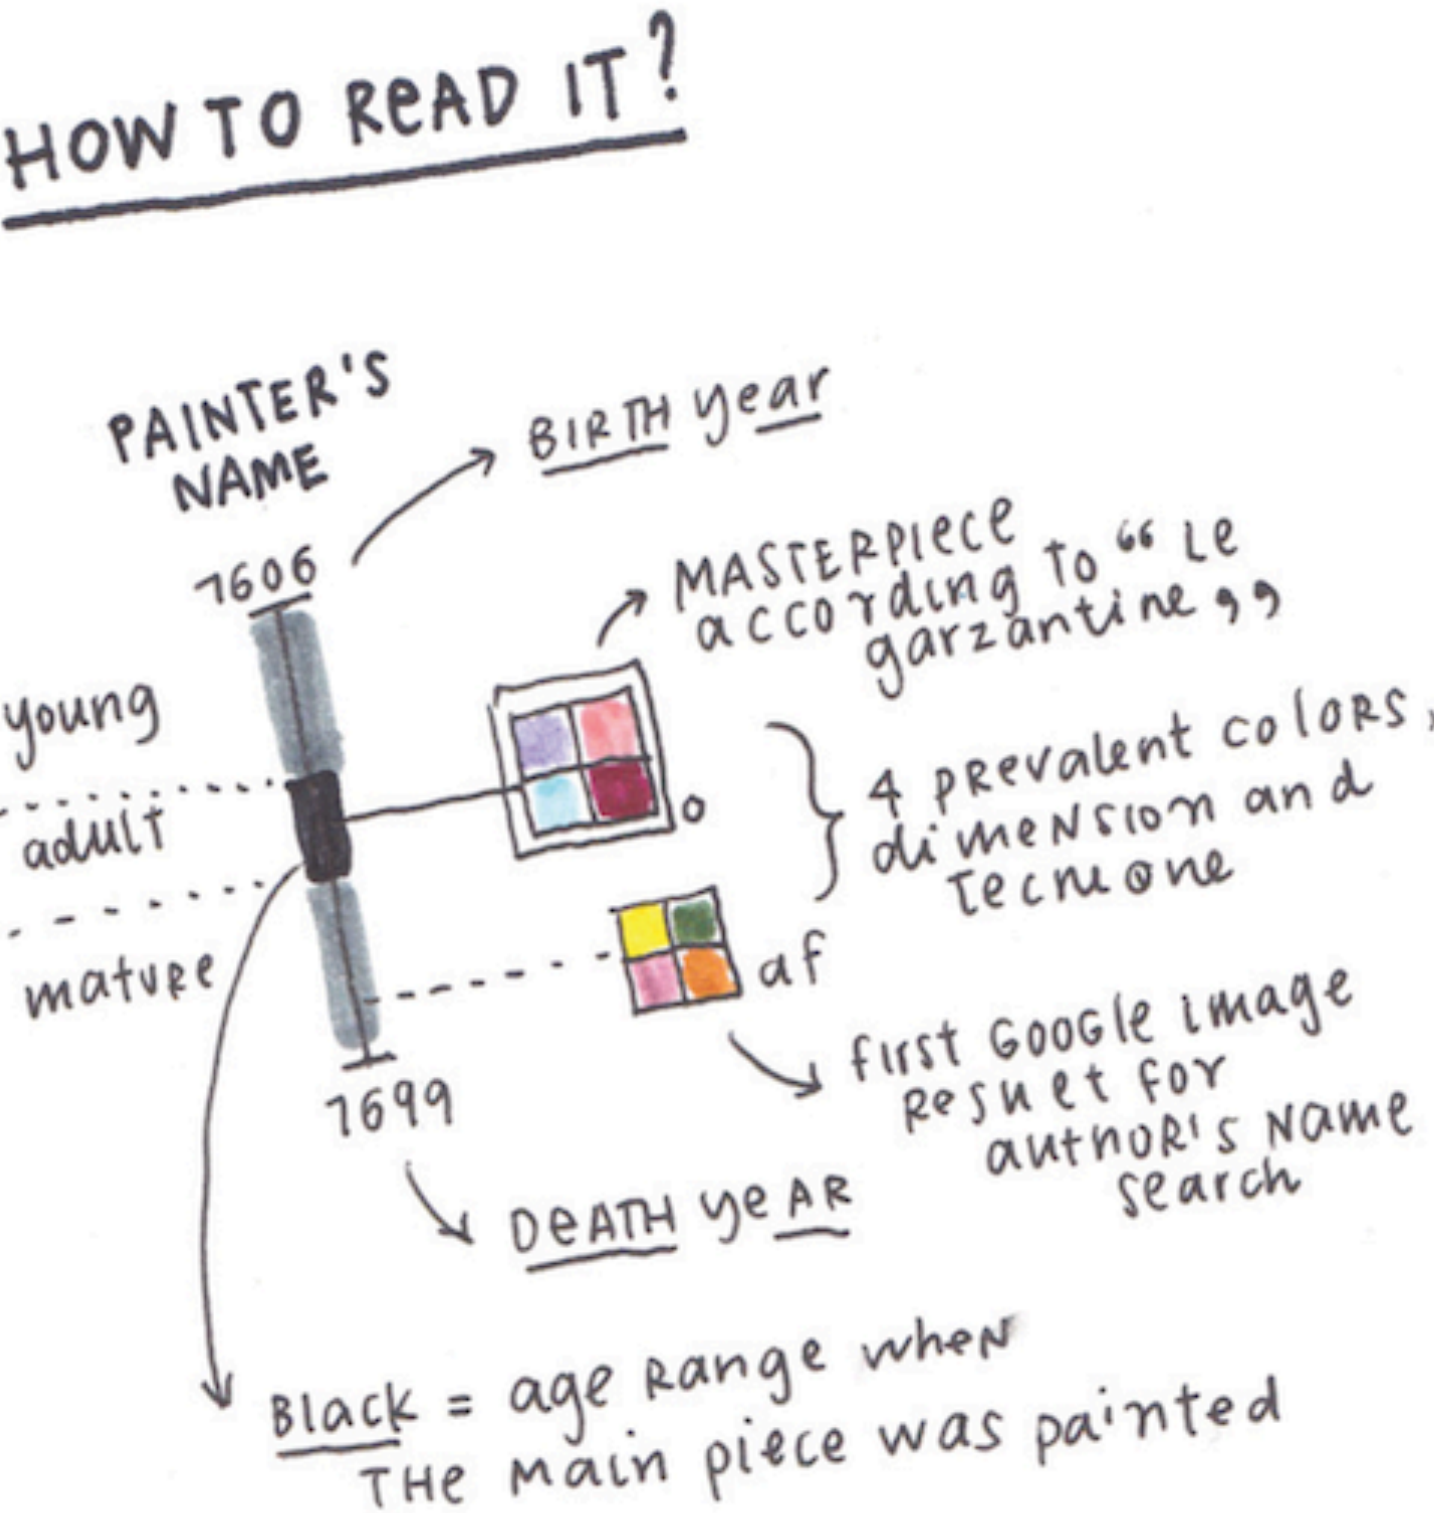 HOW TO ReAD IT?
PAINTER'S
NAME
BIRTH year
1606
MASTERPIECE
according to “Le
garzantine”
young
adult
mature
4 prevalent colors,
dimension and
o
af
first Google image
Result for
author's Name
search
1699
DeATH yeAR
Black = age Range when
THe main piece was painted